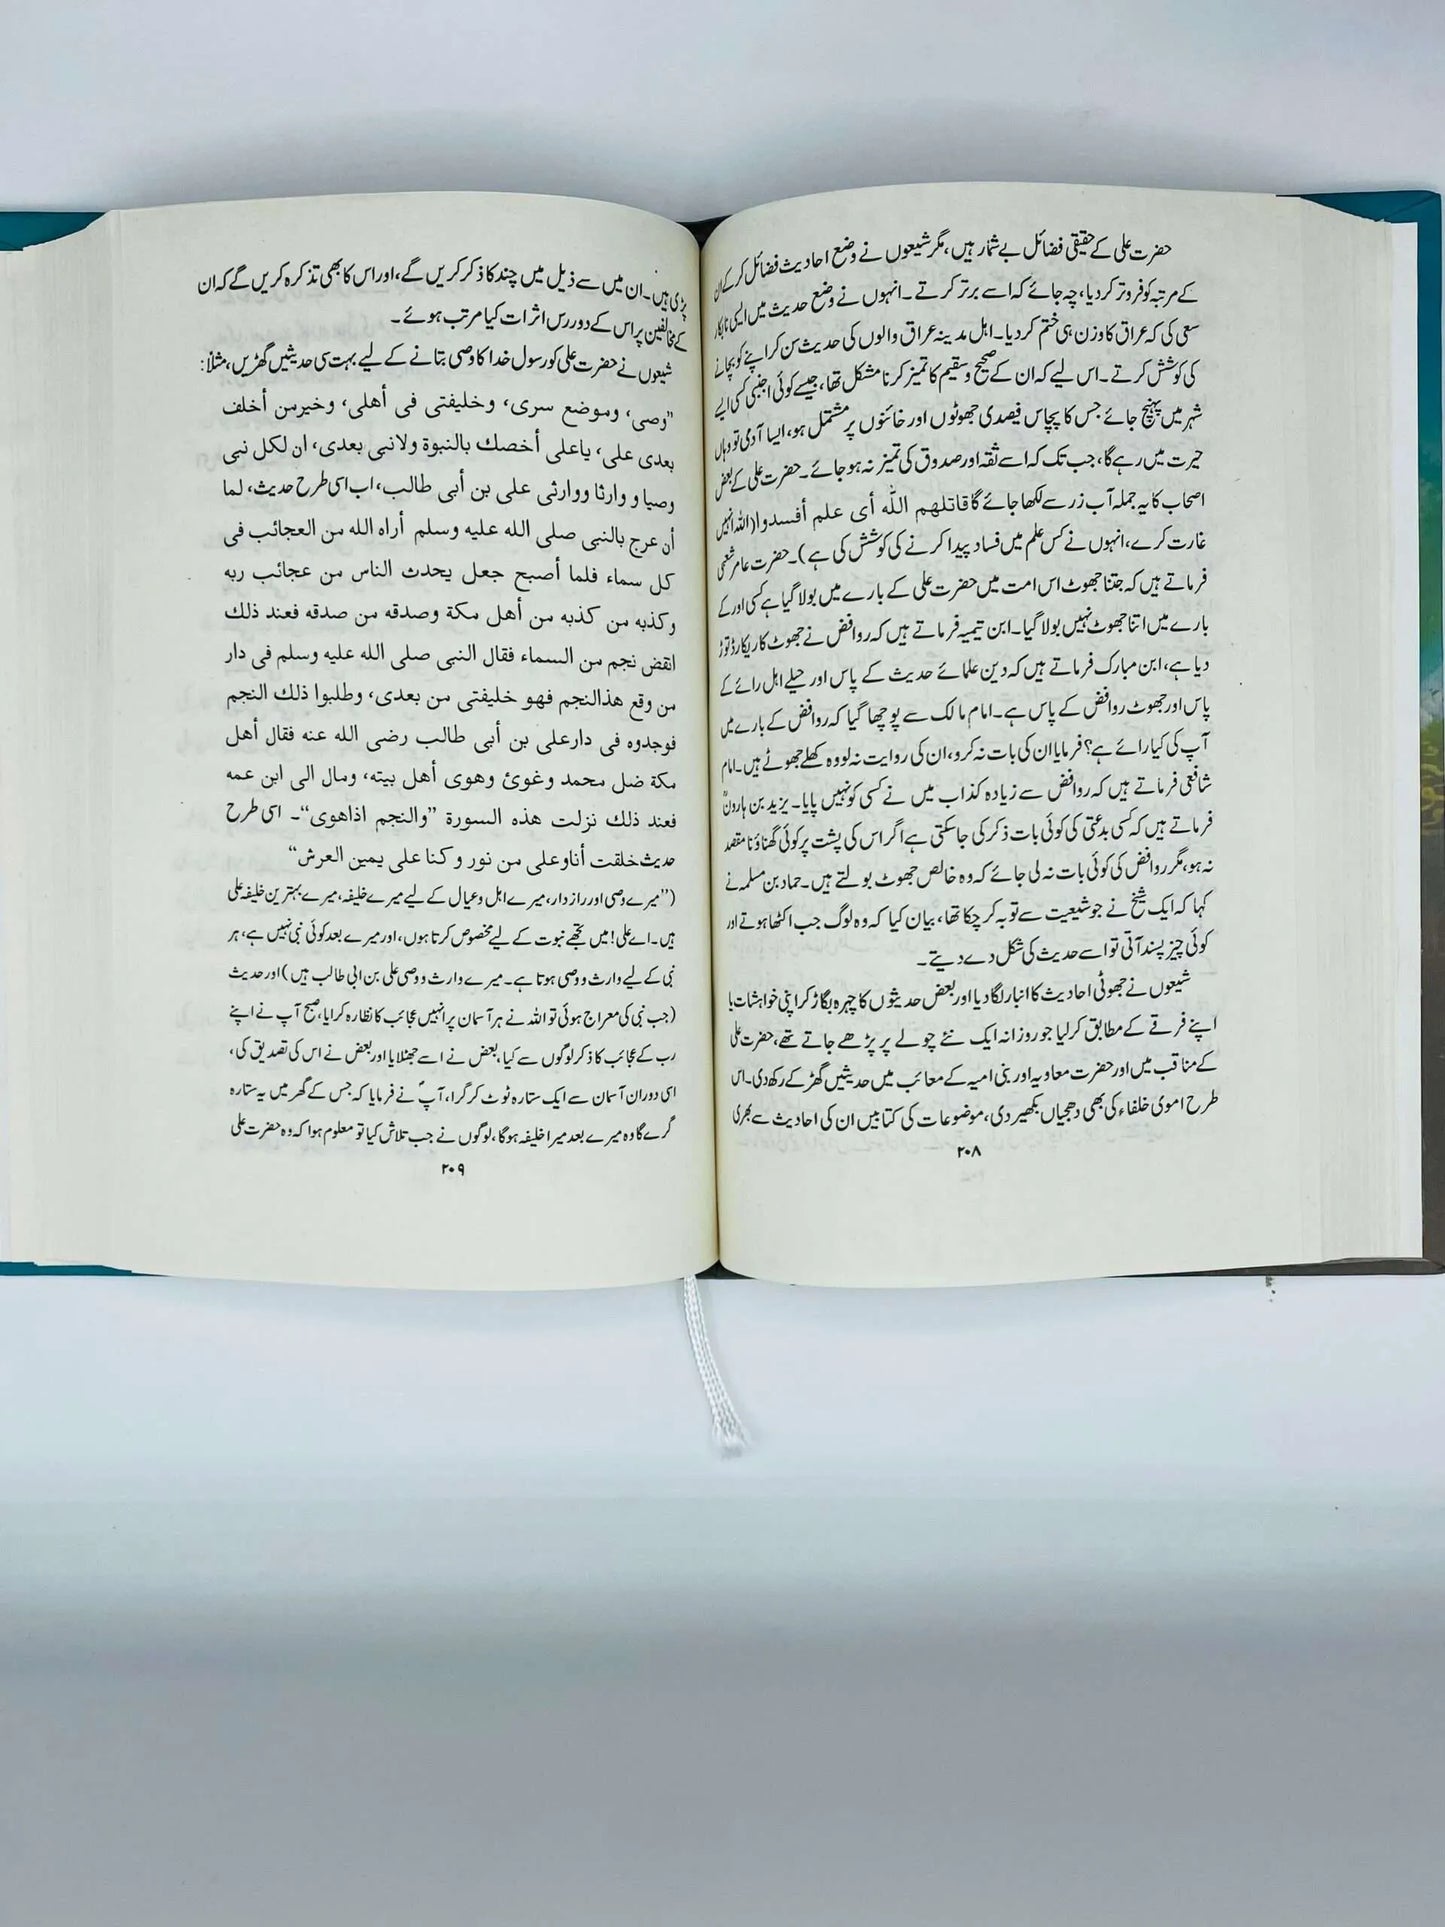 حضرت علی کے حقیقی فضائل بے شمار ہیں، مگر شیعوں نے وضع احادیث فضائل کر کے ان
کے مرتبہ کو فروتر کر دیا، چہ جائے کہ اسے برتر کرتے۔ انہوں نے وضع حدیث میں ایسی نابکار
سعی کی کہ عراق کا وزن ہی ختم کر دیا۔ اہل مدینہ عراق والوں کی حدیث سن کر اپنے کو بچانے
کی کوشش کرتے۔ اس لیے کہ ان کے صحیح و سقیم کا تمیز کرنا مشکل تھا، جیسے کوئی اجنبی کسی ایسے
شہر میں پہنچ جائے جس کا پچاس فیصدی جھوٹوں اور خائنوں پر مشتمل ہو، ایسا آدمی تو وہاں
حیرت میں رہے گا، جب تک کہ اسے ثقہ اور صدوق کی تمیز نہ ہو جائے۔ حضرت علی کے بعض
اصحاب کا یہ جملہ آب زر سے لکھا جائے گا قاتلهم اللّٰه أى علم أفسدوا (اللہ انہیں
غارت کرے، انہوں نے کس علم میں فساد پیدا کرنے کی کوشش کی ہے)۔ حضرت عامر شعبی
فرماتے ہیں کہ جتنا جھوٹ اس امت میں حضرت علی کے بارے میں بولا گیا ہے کسی اور کے
بارے میں اتنا جھوٹ نہیں بولا گیا۔ ابن تیمیہ فرماتے ہیں کہ روافض نے جھوٹ کا ریکارڈ توڑ
دیا ہے، ابن مبارک فرماتے ہیں کہ دین علمائے حدیث کے پاس اور حیلے اہل رائے کے
پاس اور جھوٹ روافض کے پاس ہے۔ امام مالک سے پوچھا گیا کہ روافض کے بارے میں
آپ کی کیا رائے ہے؟ فرمایا ان کی بات نہ کرو، ان کی روایت نہ لو وہ کھلے جھوٹے ہیں۔ امام
شافعی فرماتے ہیں کہ روافض سے زیادہ کذاب میں نے کسی کو نہیں پایا۔ یزید بن ہارونؒ
فرماتے ہیں کہ کسی بدعتی کی کوئی بات ذکر کی جا سکتی ہے اگر اس کی پشت پر کوئی گھناؤنا مقصد
نہ ہو، مگر روافض کی کوئی بات نہ لی جائے کہ وہ خالص جھوٹ بولتے ہیں۔ حماد بن مسلمہ نے
کہا کہ ایک شیخ نے جو شیعیت سے توبہ کر چکا تھا، بیان کیا کہ وہ لوگ جب اکٹھا ہوتے اور
کوئی چیز پسند آتی تو اسے حدیث کی شکل دے دیتے۔
شیعوں نے جھوٹی احادیث کا انبار لگا دیا اور بعض حدیثوں کا چہرہ بگاڑ کر اپنی خواہشات یا
اپنے فرقے کے مطابق کر لیا جو روزانہ ایک نئے چولے پر پڑھے جاتے تھے، حضرت علی
کے مناقب میں اور حضرت معاویہ اور بنی امیہ کے معائب میں حدیثیں گھڑ کے رکھ دی۔ اس
طرح اموی خلفاء کی بھی دھجیاں بکھیر دی، موضوعات کی کتابیں ان کی احادیث سے بھری
۲۰۸
پڑی ہیں۔ ان میں سے ذیل میں چند کا ذکر کریں گے، اور اس کا بھی تذکرہ کریں گے کہ ان
کے مخالفین پر اس کے دور رس اثرات کیا مرتب ہوئے۔
شیعوں نے حضرت علی کو رسول خدا کا وصی بتانے کے لیے بہت سی حدیثیں گھڑیں، مثلاً:
”وصى، وموضع سرى، وخليفتى فى أهلى، وخيرمن أخلف
بعدى على، ياعلى أخصك بالنبوة ولانبى بعدى، ان لكل نبى
وصيا و وارثا ووارثى على بن أبى طالب، اب اسی طرح حدیث، لما
أن عرج بالنبى صلى الله عليه وسلم أراه الله من العجائب فى
كل سماء فلما أصبح جعل يحدث الناس من عجائب ربه
وكذبه من كذبه من أهل مكة وصدقه من صدقه فعند ذلك
انقض نجم من السماء فقال النبى صلى الله عليه وسلم فى دار
من وقع هذالنجم فهو خليفتى من بعدى، وطلبوا ذلك النجم
فوجدوه فى دارعلى بن أبى طالب رضى الله عنه فقال أهل
مكة ضل محمد وغوئ وهوى أهل بيته، ومال الى ابن عمه
فعند ذلك نزلت هذه السورة ”والنجم اذاهوى“۔ اسی طرح
حدیث خلقت أناوعلى من نور وكنا على يمين العرش“
(”میرے وصی اور راز دار، میرے اہل و عیال کے لیے میرے خلیفہ، میرے بہترین خلیفہ علی
ہیں۔ اے علی! میں تجھے نبوت کے لیے مخصوص کرتا ہوں، اور میرے بعد کوئی نبی نہیں ہے، ہر
نبی کے لیے وارث و وصی ہوتا ہے۔ میرے وارث و وصی علی بن ابی طالب ہیں) اور حدیث
(جب نبی کی معراج ہوئی تو اللہ نے ہر آسمان پر انہیں عجائب کا نظارہ کرایا، صبح آپ نے اپنے
رب کے عجائب کا ذکر لوگوں سے کیا، بعض نے اسے جھٹلایا اور بعض نے اس کی تصدیق کی،
اسی دوران آسمان سے ایک ستارہ ٹوٹ کر گرا، آپؐ نے فرمایا کہ جس کے گھر میں یہ ستارہ
گرے گا وہ میرے بعد میرا خلیفہ ہوگا، لوگوں نے جب تلاش کیا تو معلوم ہوا کہ وہ حضرت علی
۲۰۹